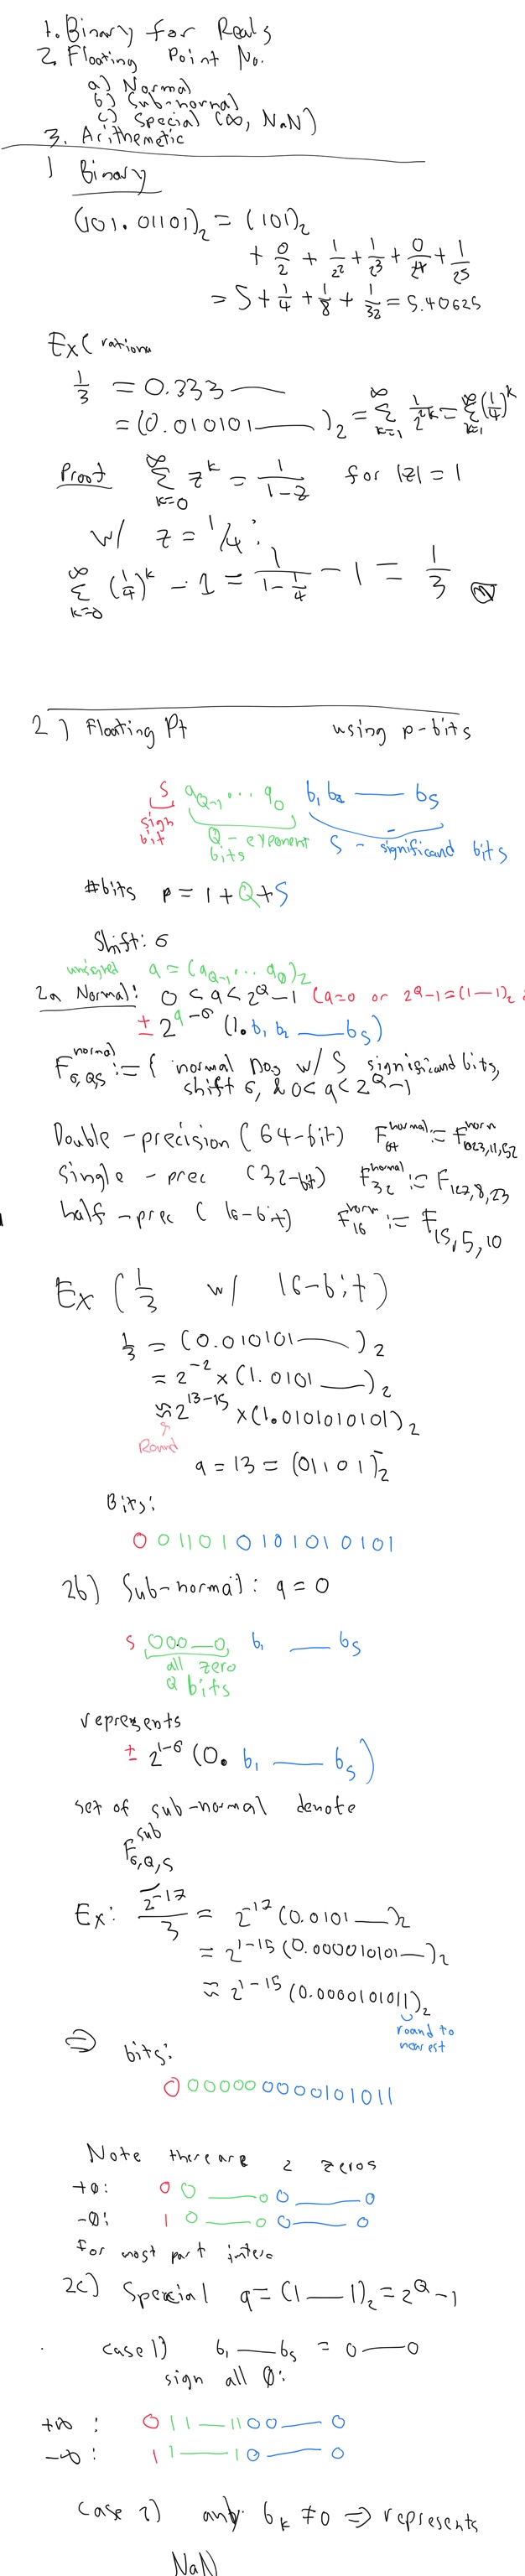 1. Binary for Reals
2. Floating Point No.
a) Normal
b) Sub-normal
c) Special (∞, NaN)
3. Arithemetic
1 Binary
(101.01101)₂ = (101)₂
+ 0/2 + 1/2² + 1/2³ + 0/2⁴ + 1/2⁵
= 5 + 1/4 + 1/8 + 1/32 = 5.40625
Ex (rationa
1/3 = 0.333——
= (0.010101——)₂ = ∑_{k=1}^∞ 1/2^{2k} = ∑_{k=1}^∞ (1/4)^k
Proof ∑_{k=0}^∞ z^k = 1/(1-z) for |z| = 1
w/ z = 1/4:
∑_{k=0}^∞ (1/4)^k - 1 = 1/(1 - 1/4) - 1 = 1/3
2) Floating Pt using p-bits
s q_{Q-1} ... q_0 b₁ b₂ —— b_S
sign bit Q - exponent bits S - significand bits
#bits p = 1 + Q + S
Shift: σ
unsigned q = (q_{Q-1} ... q_0)₂
2a Normal: 0 < q < 2^Q - 1 (q=0 or 2^Q-1 = (1—1)₂
± 2^{q-σ} (1.b₁ b₂ —— b_S)
F^{normal}_{σ,Q,S} := { normal nos w/ S significand bits,
shift σ, & 0 < q < 2^Q - 1
Double-precision (64-bit) F^{normal}_{64} := F^{norm}_{1023,11,52}
Single-prec (32-bit) F^{normal}_{32} := F_{127,8,23}
half-prec (16-bit) F^{norm}_{16} := F_{15,5,10}
Ex (1/3 w/ 16-bit)
1/3 = (0.010101——)₂
= 2^{-2} × (1.0101——)₂
≈ 2^{13-15} × (1.0101010101)₂
Round
q = 13 = (01101)₂
Bits:
0 01101 0101010101
2b) Sub-normal: q = 0
s 000—0 b₁ —— b_S
all zero
Q bits
represents
± 2^{1-σ} (0. b₁ —— b_S)
set of sub-normal denote
F^{sub}_{σ,Q,S}
Ex: 2^{-17}/3 = 2^{-17} (0.0101—)₂
= 2^{1-15} (0.000010101—)₂
≈ 2^{1-15} (0.0000101011)₂
round to
nearest
⇒ bits:
0 00000 0000101011
Note there are 2 zeros
+0: 0 0——0 0——0
-0: 1 0——0 0——0
for most part
2c) Special q = (1——1)₂ = 2^Q - 1
case 1) b₁——b_S = 0——0
sign all 0:
+∞: 0 11—11 00——0
-∞: 1 1——1 0——0
Case 2) any b_k ≠ 0 ⇒ represents
NaN